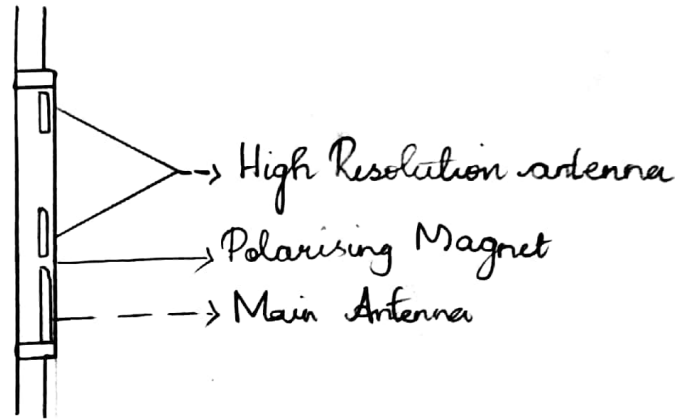 High Resolution antenna
Polarising Magnet
Main Antenna